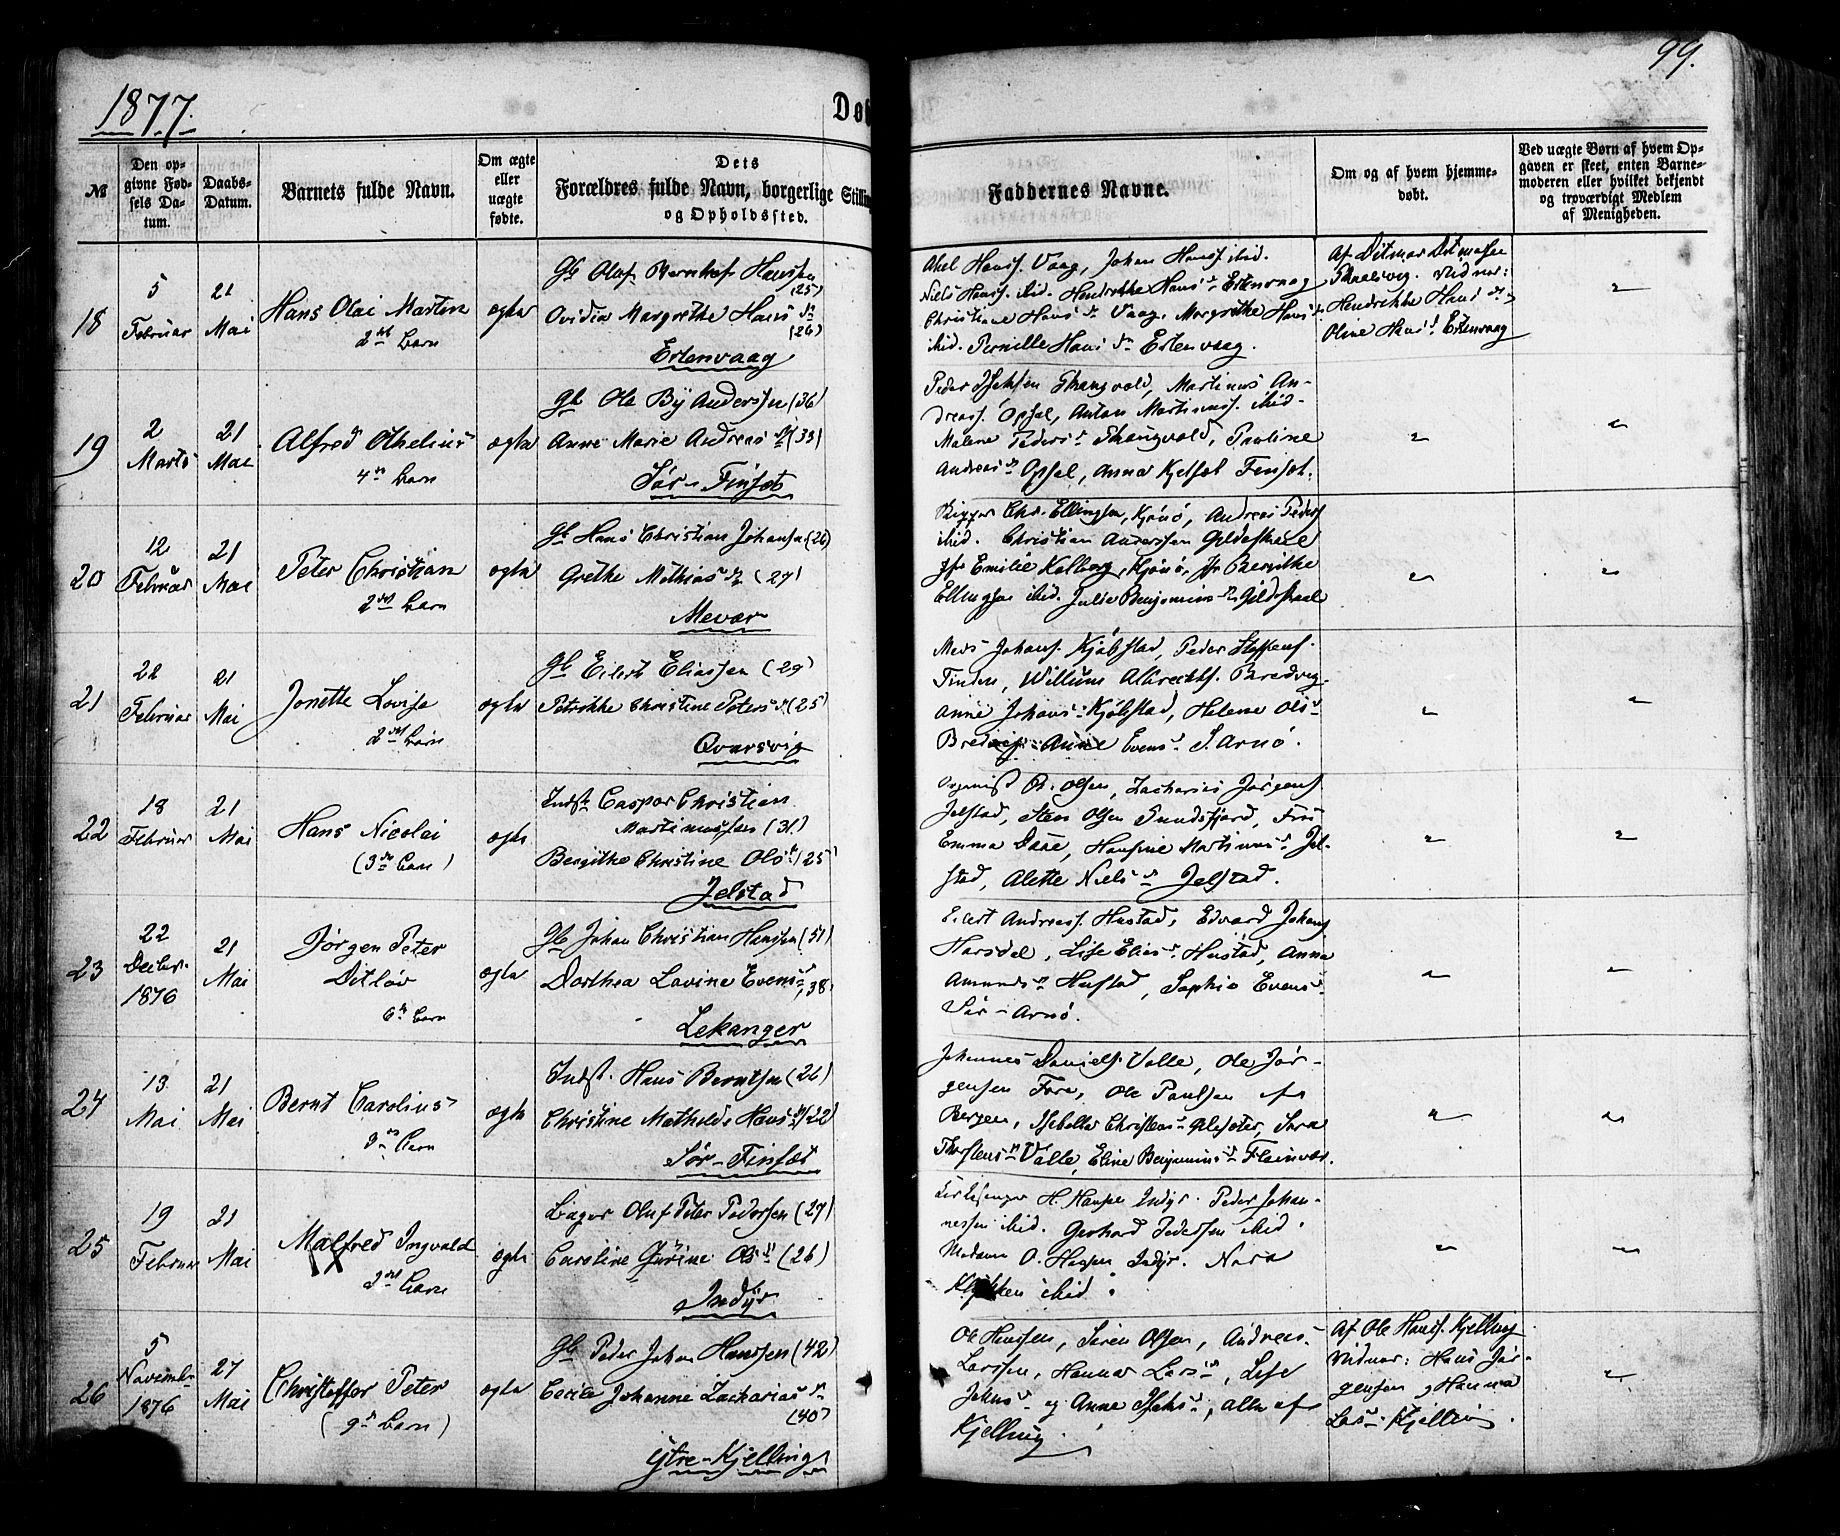 1877.
Døb
99.
№
Den op-
givne Fød-
sels Da-
tum.
Daabs-
Datum.
Barnets fulde Navn.
Om ægte
eller
uægte
fødte.
Dets
Forældres fulde Navn, borgerlige Stillin
og Opholdssted.
Faddernes Navne.
Om og af hvem hjemme-
døbt.
Ved uægte Børn af hvem Op-
gaven er skeet, enten Barne-
moderen eller hvilket bekjendt
og troværdigt Medlem
af Menigheden.
18
5
Februar
21
Mai
Hans Olai Martin
2det Barn
ægte
Gb Oluf Bernhof Hanssen
(25)
Ovidia Margrethe Hans dr
(26)
Ertenvaag
Axel Hanss. Vaag, Johan Hanss. ibid.
Niels Hanss. ibid. Hendrikke Hans dr Ertenvaag
Christiane Hans dr Vaag, Margrethe Hans dr
ibid. Pernille Hans dr Ertenvaag.
Af Ditmar Ditmarsen
Skaalsvig. Vidner:
Hendrikke Hans dr
Oline Hans d. Ertenvaag
"
19
2
Marts
21
Mai
Alfred Othelius
4de Barn
ægte
Gb Ole By Anderssen (36)
Anne Marie Andreas dr (33)
Sør-Finset
Peder Isaksen Skaugvold, Martinus An-
dreass. Opsal, Anton Martinuss. ibid.
Malene Peders dr Skaugvold, Pauline
Andreas dr Opsal, Anna Kjelsat Finset.
"
"
20
12
Februar
21
Mai
Peter Christian
2det Barn
ægte
Gb Hans Christian Johansen (26)
Grethe Mathias dr (27)
Mevær
Chr. Ellingsen, Kjønø, Andreas Peders
ibid. Christian Anderssen Gildeskaal
Jfr Emilie Kalborg, Kjønø, Jfr Bergitte
Ellingsen ibid. Julie Benjamins dr Gildeskaal
"
"
21
22
Februar
21
Mai
Jonette Lovise
2det Barn
ægte
Gb Eilert Eliassen (29)
Petrikke Christine Peters dr (25)
Qvarsvig
Mons Johans. Kjøbstad, Peder Steffens.
Finden, Willum Albrechts. Bredvig.
Anne Johans dr Kjøbstad, Helene Ols dr
Bredvig. Anne Evens dr S. Arnø.
"
"
22
18
Februar
21
Mai
Hans Nicolai
(3de Barn)
ægte
Indst. Caspar Christian
Martinussen (31)
Bergithe Christine Ols dr (25)
Jelstad
Organist P. Olsen, Zacharias Jørgens.
Jelstad, Sten Olsen Sundsfjord, Frü
Emma Daae, Hansine Martinus dr Jel-
stad, Alette Niels dr Jelstad.
"
"
23
22
Decbr.
1876
21
Mai
Jørgen Peter
Ditløv
6te Barn
ægte
Gb Johan Christian Hanssen (51)
Dorthea Lovine Evens dr
38.
Lekanger
Eilert Andreass. Hustad, Edvard Johans.
Horsdal, Lise Elias dr Hustad, Anna
Amunds dr Hustad, Sophie Evens dr
Sør-Arnø.
"
"
24
13
Mai
21
Mai
Bernt Carolius
3de Barn
ægte
Indst. Hans Berntsen (26)
Christine Mathilde Hans dr (22)
Sør-Finset
Johannes Daniels. Valle, Ole Jør-
gensen Fore, Ole Paulsen af
Bergen, Isebella Christens dr Gilesæter, Sara
Thorstens dr Valle, Eline Benjamins dr Fleinvær.
"
"
25
19
Februar
21
Mai
Malfred Ingvald
2det Barn
ægte
Bager Oluf Peter Pedersen (27)
Caroline Gurine Ols dr (26)
Indyr
Kirkesanger H. Haugen Indyr. Peder Johan-
nessen ibid. Gerhard Pedersen ibid.
Madame O. Haugen Indyr. Nora
ibid.
"
"
26
5
Novembr
1876
27
Mai
Christoffer Peter
(9de Barn)
ægte
Gb Peder Johan Hanssen (42)
Cecilie Johanne Zacharias dr
(40)
Ytre-Kjelling
Ole Hanssen, Søren Olsen, Andreas
Larssen, Hanna Lars dr, Lise
Johns dr og Anne Isaks dr, alle af
Kjelling
Af Ole Hanss. Kjelling
Vidner: Hans Jør-
gensen, Hanna
Lars dr Kjelling
"